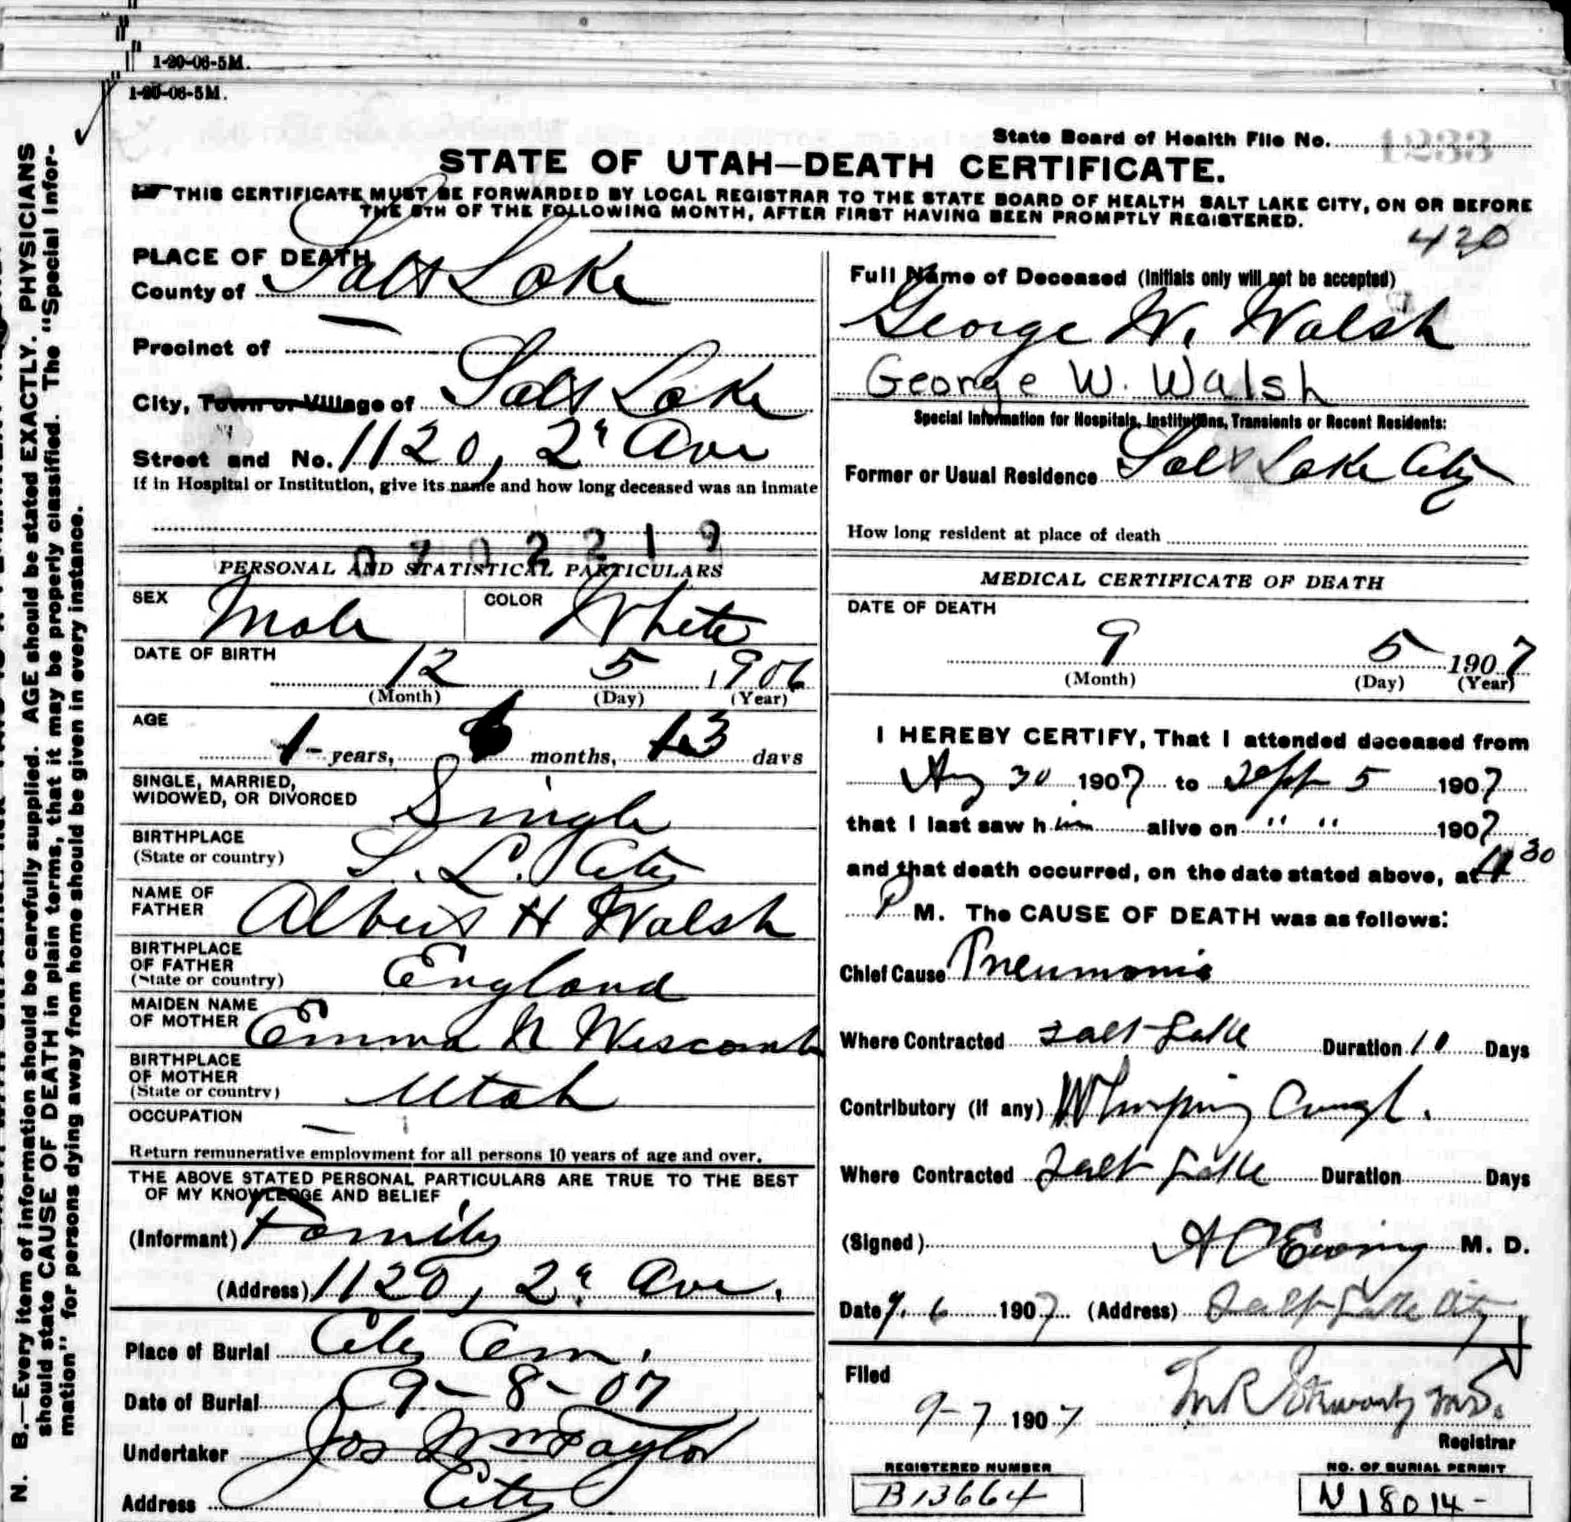 1-20-06-5M.
1-20-06-5M.
State Board of Health File No. 1233
STATE OF UTAH—DEATH CERTIFICATE.
THIS CERTIFICATE MUST BE FORWARDED BY LOCAL REGISTRAR TO THE STATE BOARD OF HEALTH SALT LAKE CITY, ON OR BEFORE
THE 5TH OF THE FOLLOWING MONTH, AFTER FIRST HAVING BEEN PROMPTLY REGISTERED.
420
PLACE OF DEATH
County of Salt Lake
Precinct of —
City, Town or Village of Salt Lake
Street and No. 1120, 2d Ave
If in Hospital or Institution, give its name and how long deceased was an inmate
0702219
PERSONAL AND STATISTICAL PARTICULARS
SEX Male COLOR White
DATE OF BIRTH 12 5 1906
(Month) (Day) (Year)
AGE
1 years, months, 13 days
SINGLE, MARRIED,
WIDOWED, OR DIVORCED Single
BIRTHPLACE
(State or country) S. L. City
NAME OF
FATHER Albert H Walsh
BIRTHPLACE
OF FATHER
(State or country) England
MAIDEN NAME
OF MOTHER Emma N Wiscomb
BIRTHPLACE
OF MOTHER
(State or country) Utah
OCCUPATION —
Return remunerative employment for all persons 10 years of age and over.
THE ABOVE STATED PERSONAL PARTICULARS ARE TRUE TO THE BEST
OF MY KNOWLEDGE AND BELIEF
(Informant) Family
(Address) 1120, 2d Ave.
Place of Burial City Cem.
Date of Burial 9-8-07
Undertaker Jos Wm Taylor
Address City
Full Name of Deceased (Initials only will not be accepted)
George W. Walsh
George W. Walsh
Special Information for Hospitals, Institutions, Transients or Recent Residents:
Former or Usual Residence Salt Lake City
How long resident at place of death
MEDICAL CERTIFICATE OF DEATH
DATE OF DEATH
9 5 1907
(Month) (Day) (Year)
I HEREBY CERTIFY, That I attended deceased from
Aug 30 1907 to Sept 5 1907
that I last saw him alive on " " 1907
and that death occurred, on the date stated above, at 4 30
P M. The CAUSE OF DEATH was as follows:
Chief Cause Pneumonia
Where Contracted Salt Lake Duration 10 Days
Contributory (if any) Whooping Cough.
Where Contracted Salt Lake Duration Days
(Signed) A C Ewing M. D.
Date 9. 6 1907 (Address) Salt Lake City
Filed
9-7 1907 M.D.
Registrar
REGISTERED NUMBER
B13664
NO. OF BURIAL PERMIT
N18014-
N. B.—Every item of information should be carefully supplied. AGE should be stated EXACTLY. PHYSICIANS
should state CAUSE OF DEATH in plain terms, that it may be properly classified. The "Special Infor-
mation" for persons dying away from home should be given in every instance.